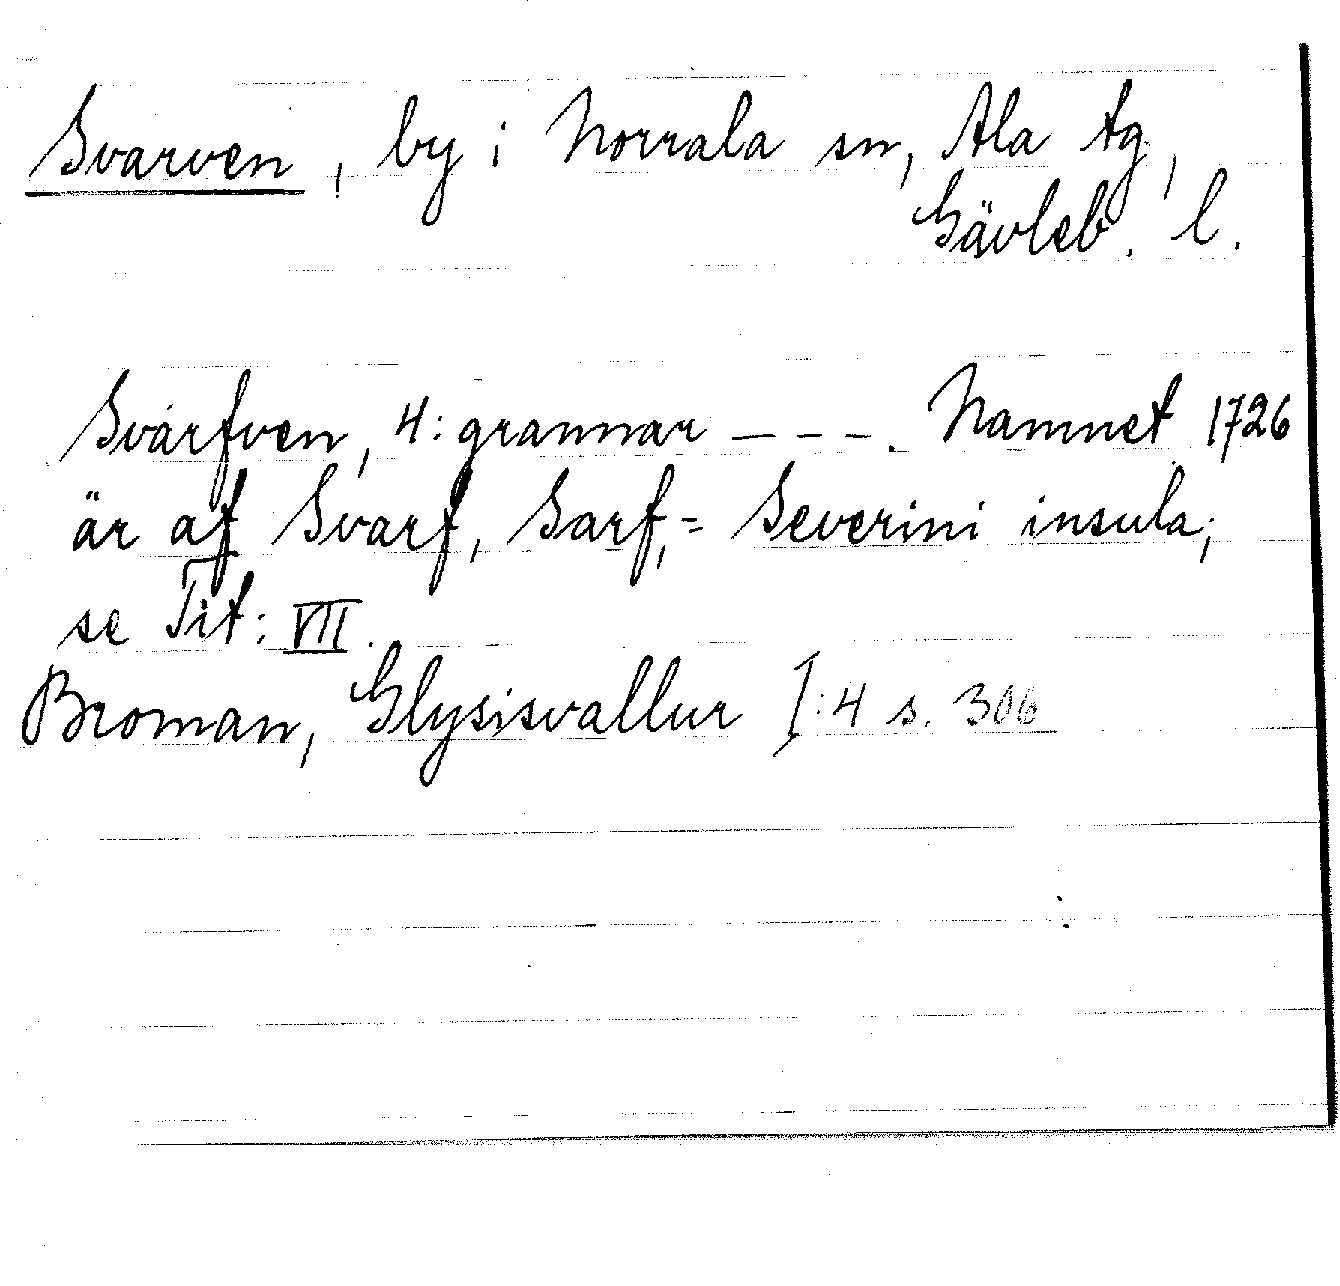 Svarven, by i Norrala sn, Ala tg,
Gävleb. l.
Svarfven, 4: grannar – – – –. Namnet 1726
är af Svarf, Sarf, = Severini insula;
se Tit: VII.
Broman, Glysisvallur I:4 s. 306